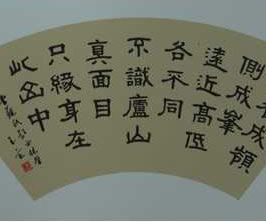 看成嶺
側成峯
遠近高低
各不同
不識廬山
真面目
只緣身在
此山中